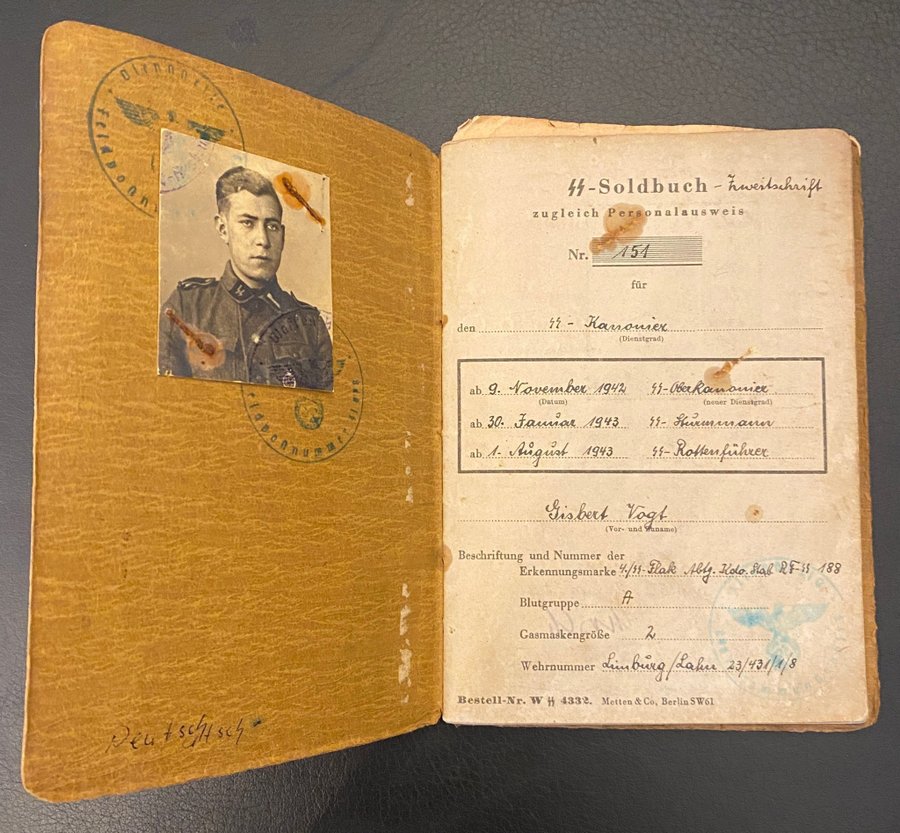 Dienststelle
Feldpostnummer
Deutsch
ϟϟ-Soldbuch - Zweitschrift
zugleich Personalausweis
Nr. 151
für
den ϟϟ - Kanonier
(Dienstgrad)
ab 9. November 1942 ϟϟ-Oberkanonier
(Datum) (neuer Dienstgrad)
ab 30. Januar 1943 ϟϟ- Sturmmann
ab 1. August 1943 ϟϟ- Rottenführer
Gisbert Vogt
(Vor- und Zuname)
Beschriftung und Nummer der
Erkennungsmarke 4./ϟϟ-Flak Abtg. Kdo. Stab RF-ϟϟ 188
Blutgruppe A
Gasmaskengröße 2
Wehrnummer Limburg/Lahn 23/431/1/8
Bestell-Nr. W ϟϟ 4332. Metten & Co, Berlin SW61